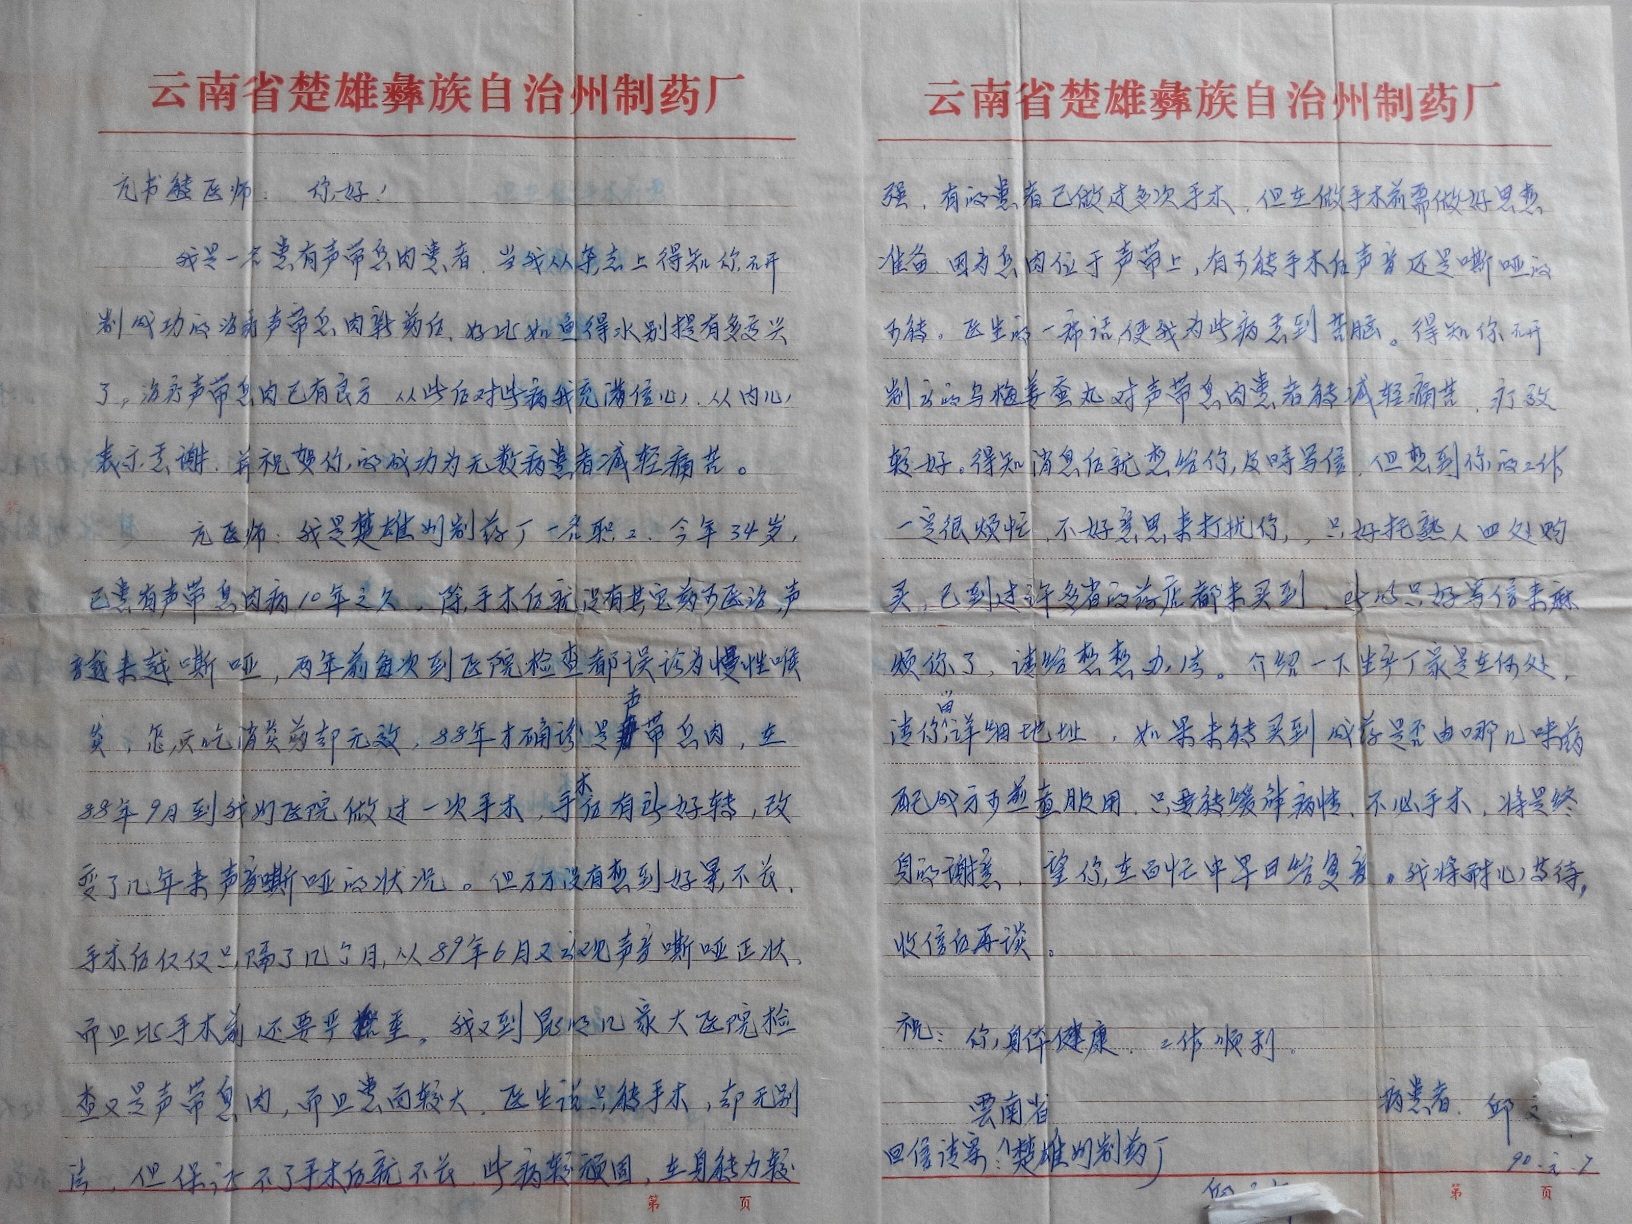 云南省楚雄彝族自治州制药厂
亢书䏻医师： 你好！
我是一名患有声带息肉患者，当我从杂志上得知你研
制成功的治疗声带息肉新药后，好比如鱼得水别提有多高兴
了。治疗声带息肉已有良方 从此后对此病我充满信心，从内心
表示意谢，并祝贺你的成功为无数病患者减轻痛苦。
亢医师：我是楚雄州制药厂一名职工，今年34岁，
已患有声带息肉病10年之久，除手术后就没有其它药可医治，声
音越来越嘶哑，两年前每次到医院检查都误诊为慢性喉
炎，怎庅吃消炎药却无效，88年才确诊是声带息肉，在
88年9月到我州医院做过一次手术，手术后有所好转，改
变了几年来声音嘶哑的状况。但万万没有想到好景不长，
手术后仅仅只隔了几个月，从89年6月又出现声音嘶哑正状，
而且比手术前还要严重。我又到昆明几家大医院检
查又是声带息肉，而且患面较大，医生说只能手术，却无别
法，但保证不了手术后就不长，此病较顽固，在身能力较
云南省楚雄彝族自治州制药厂
强，有的患者已做过多次手术，但在做手术前需做好思想
准备，因为息肉位于声带上，有可能手术后声音还是嘶哑的
可能。医生的一席话，使我为此病患到苦脑。得知你研
制出的乌梅姜蚕丸对声带息肉患者能减轻痛苦，疗效
较好。得知消息后就想给你及时写信，但想到你的工作
一定很烦忙，不好意思来打扰你，只好托熟人四处购
买，已到过许多省的药店都未买到，此时只好写信来麻
烦你了，请给想想办法。介绍一下生产厂家是在何处，
请你留详细地址，如果未能买到成药是否由哪几味药
配成方可煎煮服用，只要能缓解病情，不必手术，将是终
身的谢意，望你在百忙中早日给复音。我将耐心等待，
收信后再谈。
祝：你身体健康，工作顺利。
病患者 邱
雲南省
回信请寄：楚雄州制药厂
90.元.7
第 页
第 页